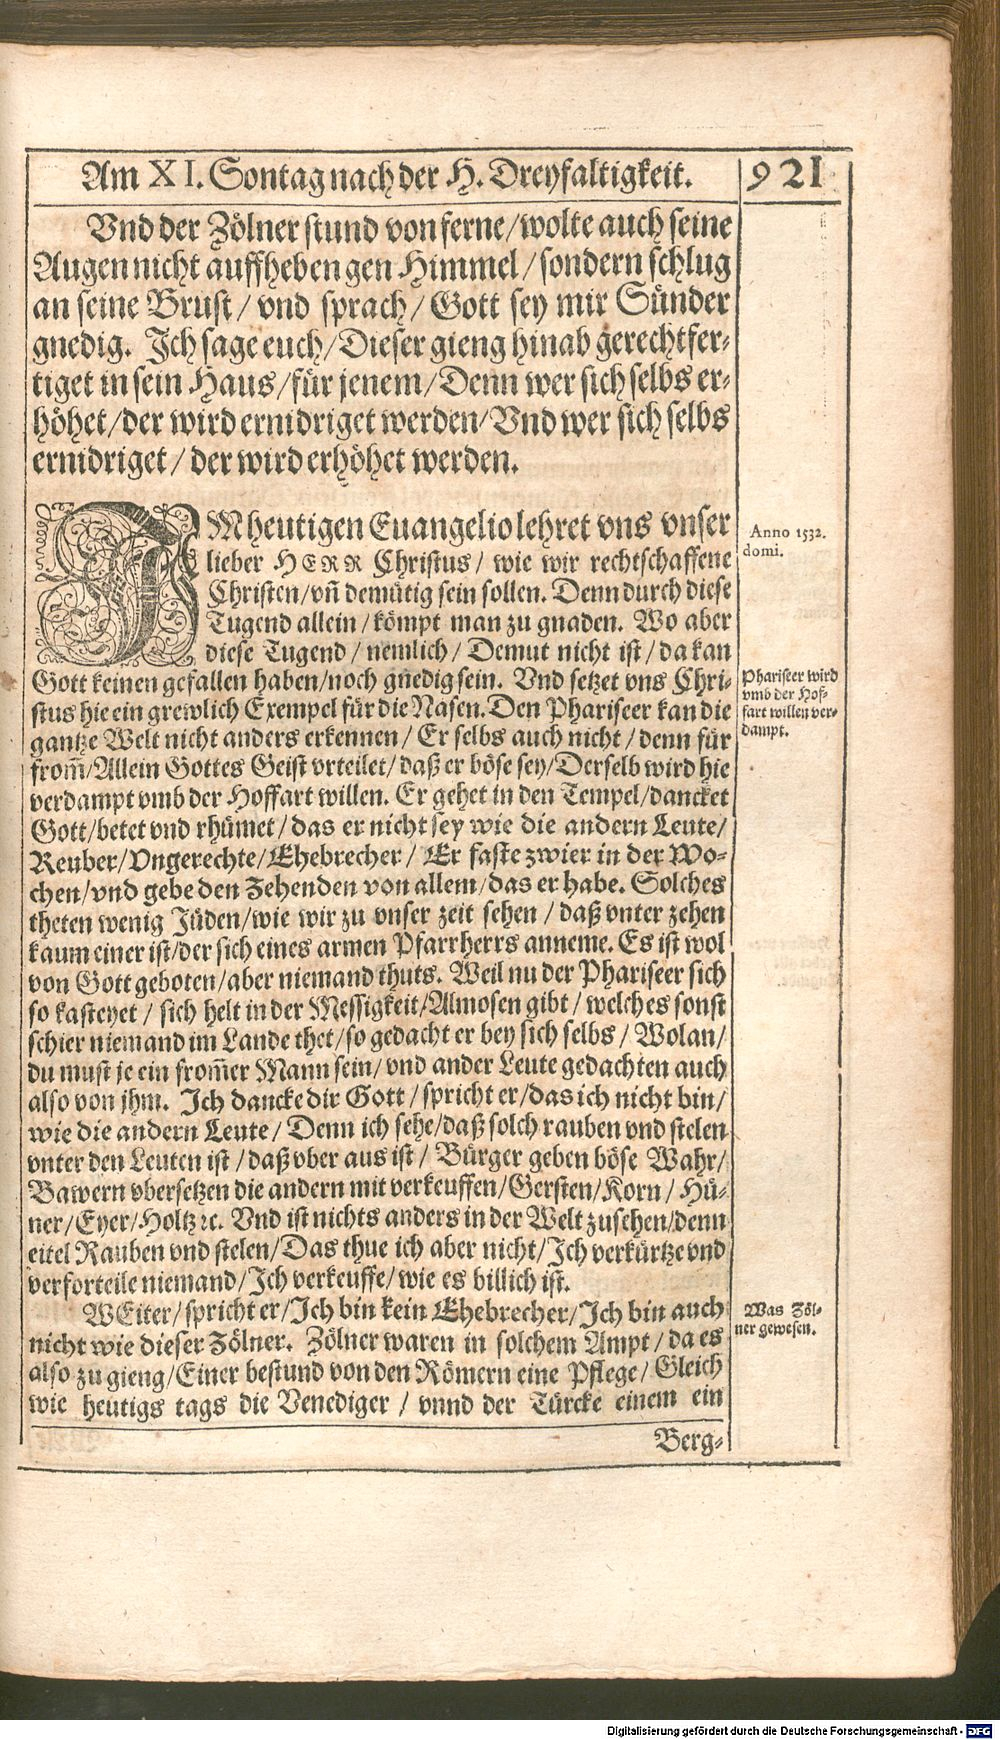 Am XI. Sontag nach der H. Dreyfaltigkeit.
921
Vnd der Zölner stund von ferne/wolte auch seine
Augen nicht auffheben gen Himmel/sondern schlug
an seine Brust/ vnd sprach/ Gott sey mir Sünder
gnedig. Ich sage euch/Dieser gieng hinab gerechtfer-
tiget in sein Haus/für jenem/Denn wer sich selbs er-
höhet/der wird ernidriget werden/Vnd wer sich selbs
ernidriget/ der wird erhöhet werden.
IM heutigen Euangelio lehret vns vnser
lieber HERR Christus/ wie wir rechtschaffene
Christen/vñ demütig sein sollen. Denn durch diese
Tugend allein/kömpt man zu gnaden. Wo aber
diese Tugend/ nemlich/ Demut nicht ist/da kan
Gott keinen gefallen haben/noch gnedig sein. Vnd setzet vns Chri-
stus hie ein grewlich Exempel für die Nasen. Den Phariseer kan die
gantze Welt nicht anders erkennen/ Er selbs auch nicht/denn für
from̃/Allein Gottes Geist vrteilet/daß er böse sey/Derselb wird hie
verdampt vmb der Hoffart willen. Er gehet in den Tempel/dancket
Gott/betet vnd rhümet/das er nicht sey wie die andern Leute/
Reuber/Vngerechte/Ehebrecher/ Er faste zwier in der Wo-
chen/vnd gebe den Zehenden von allem/das er habe. Solches
theten wenig Jüden/wie wir zu vnser zeit sehen/daß vnter zehen
kaum einer ist/der sich eines armen Pfarrherrs anneme. Es ist wol
von Gott geboten/aber niemand thuts. Weil nu der Phariseer sich
so kasteyet/ sich helt in der Messigkeit/Almosen gibt/ welches sonst
schier niemand im Lande thet/so gedacht er bey sich selbs/ Wolan/
du must je ein from̃er Mann sein/vnd ander Leute gedachten auch
also von jhm. Ich dancke dir Gott/spricht er/das ich nicht bin/
wie die andern Leute/ Denn ich sehe/daß solch rauben vnd stelen
vnter den Leuten ist/daß vber aus ist/ Bürger geben böse Wahr/
Bawern vbersetzen die andern mit verkeuffen/Gersten/Korn/ Hü-
ner/Eyer/Holtz ꝛc. Vnd ist nichts anders in der Welt zusehen/denn
eitel Rauben vnd stelen/Das thue ich aber nicht/Ich verkürtze vnd
verforteile niemand/Ich verkeuffe/wie es billich ist.
WEiter/spricht er/Ich bin kein Ehebrecher/Ich bin auch
nicht wie dieser Zölner. Zölner waren in solchem Ampt/da es
also zu gieng/Einer bestund von den Römern eine Pflege/Gleich
wie heutigs tags die Venediger/ vnnd der Türcke einem ein
Berg-
Anno 1532.
domi.
Phariseer wird
vmb der Hof-
fart willen ver-
dampt.
Was Zöl-
ner gewesen.
Digitalisierung gefördert durch die Deutsche Forschungsgemeinschaft - DFG